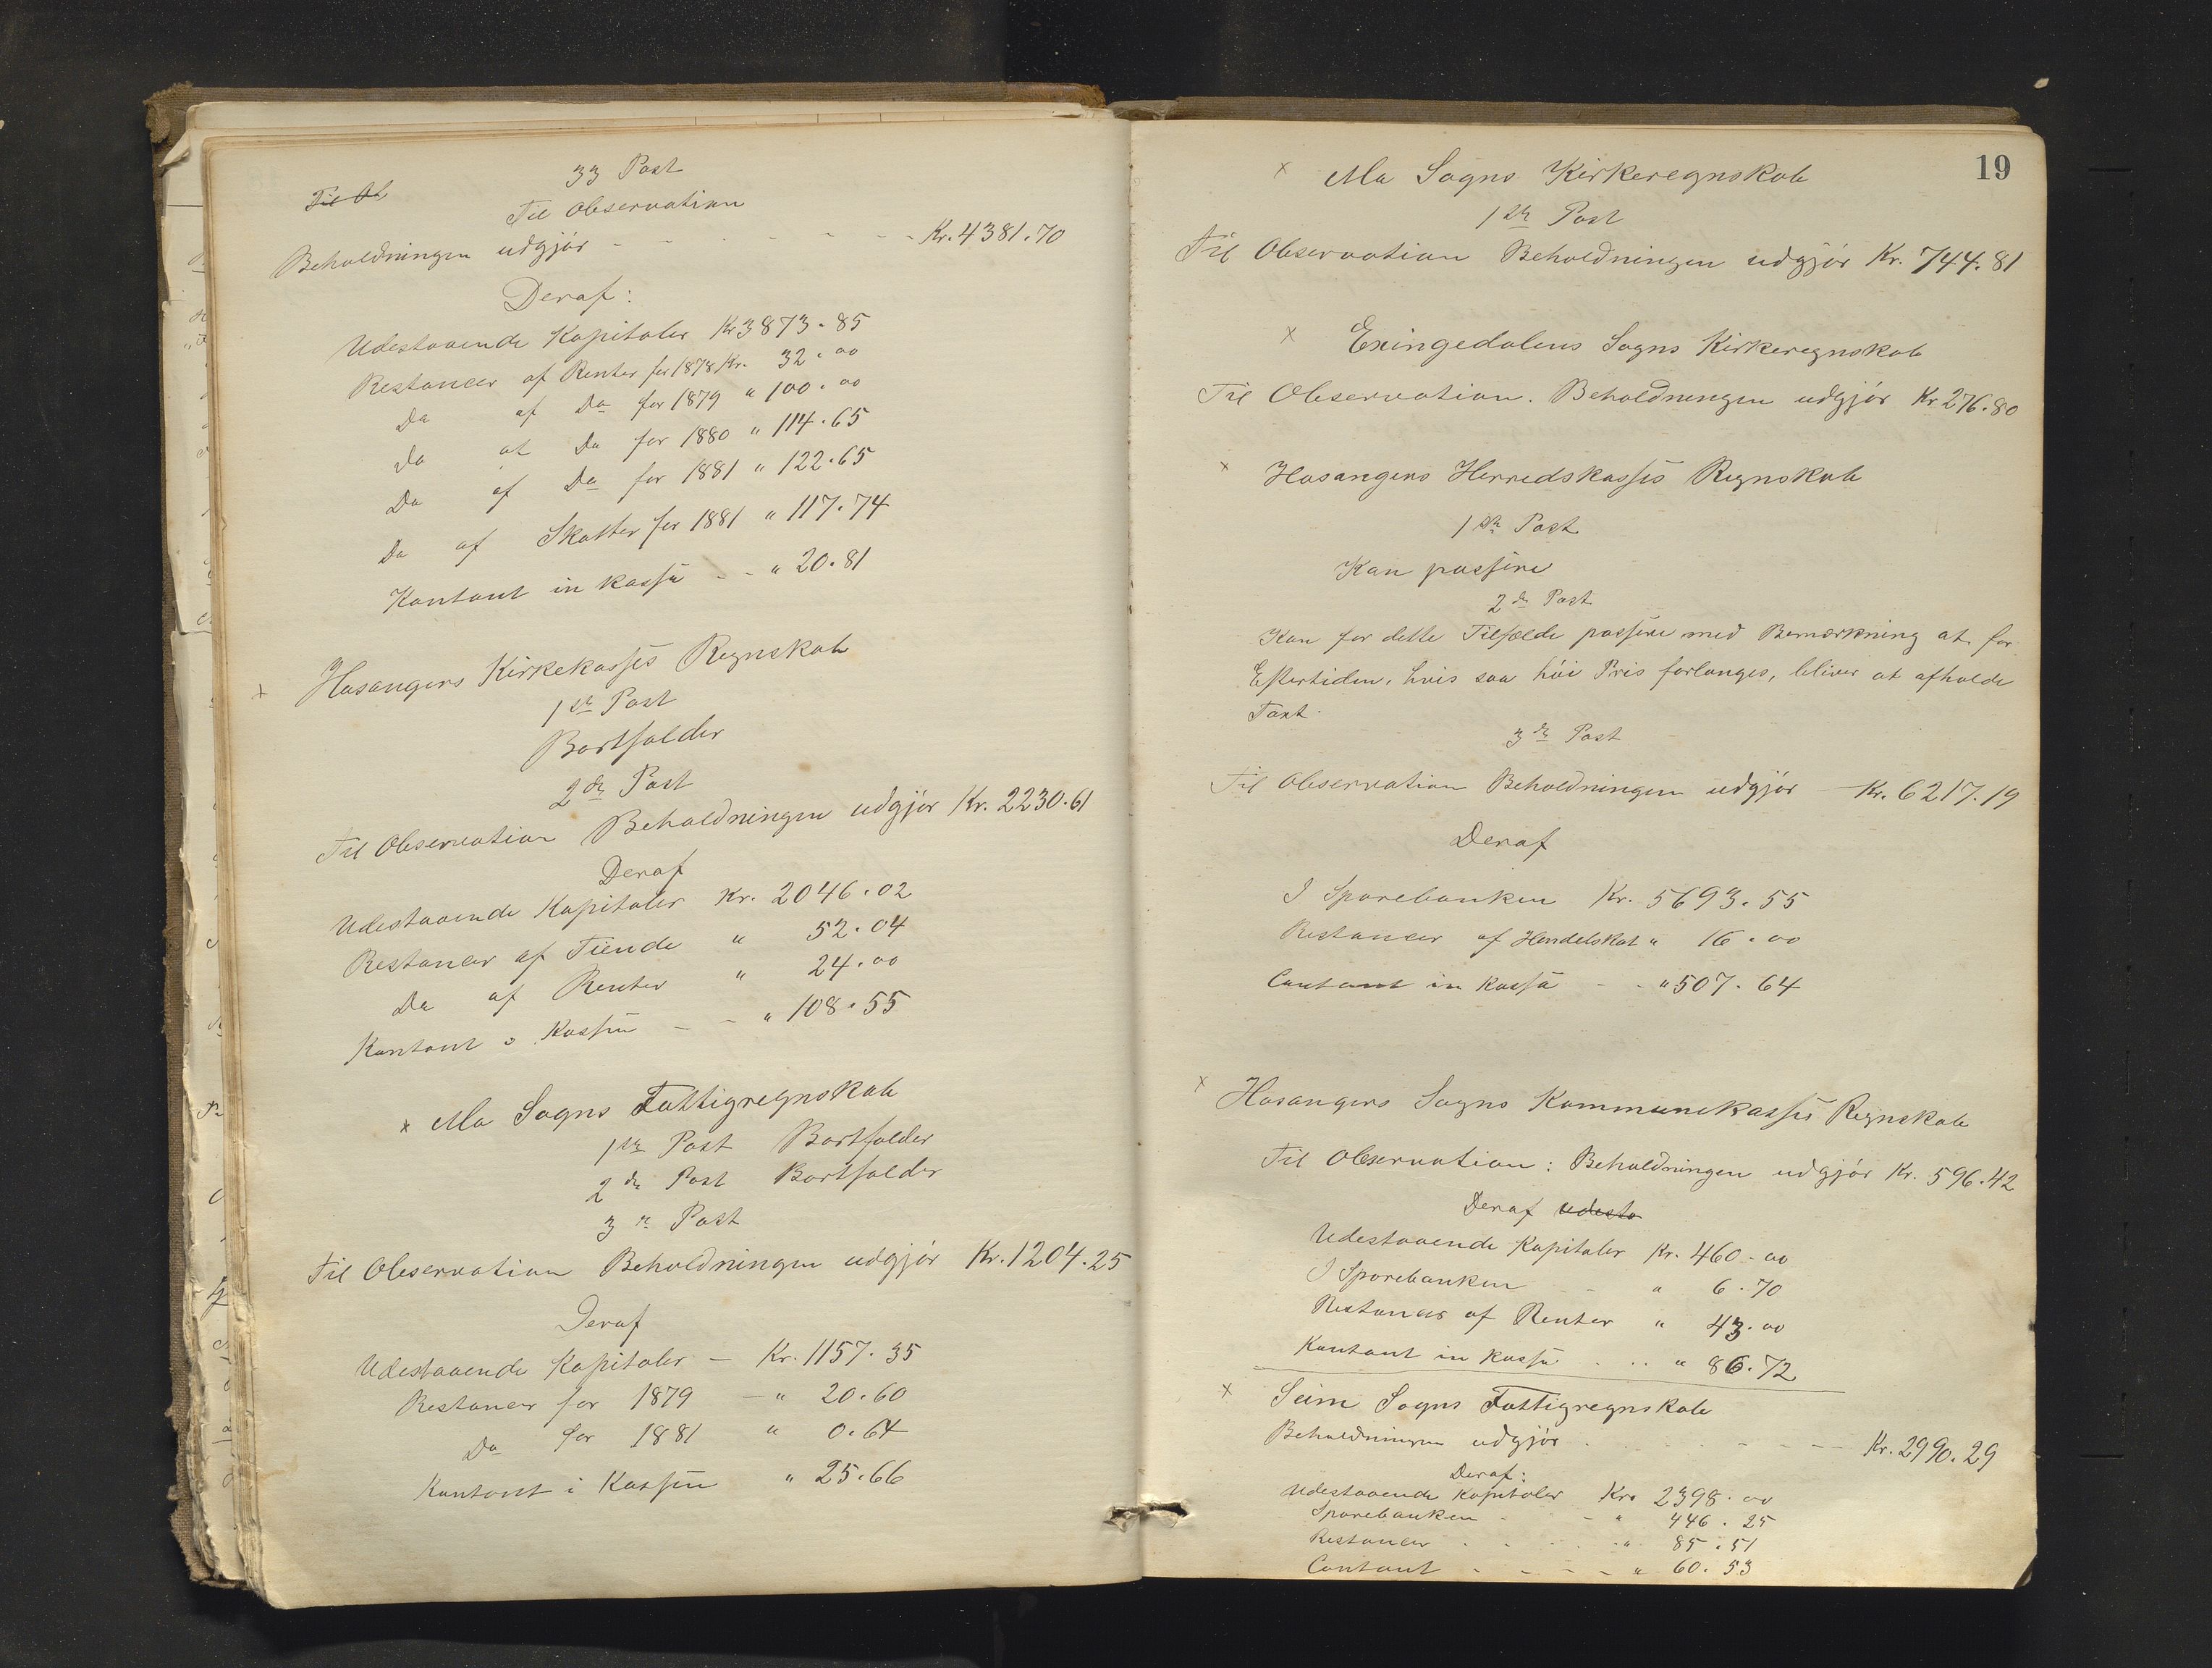 33 Post
Til Ob
Til Observation
Beholdningen udgjör - - - - - - Kr. 4381.70
Deraf:
Udestaaende Kapitaler Kr 3873.85
Restancer af Renter for 1878 Kr. 32.00
Do af Do for 1879 " 100.00
Do af Do for 1880 " 114.65
Do af Do for 1881 " 122.65
Do af Skatter for 1881 " 117.74
Kontant in kassa - - " 20.81
x Hosangers Kirkekasses Regnskab
1ste Post
Bortfalder
2den Post
Til Observation Beholdningen udgjör Kr. 2230.61
Deraf
Udestaaende Kapitaler Kr. 2046.02
Restancer af Tiende " 52.04
Do af Renter " 24.00
Kontant i Kassen - - " 108.55
x Mo Sogns Fattigregnskab
1ste Post Bortfalder
2den Post Bortfalder
3die Post
Til Observation Beholdningen udgjör Kr. 1204.25
Deraf
Udestaaende Kapitaler - Kr. 1157.35
Restancer for 1879 - " 20.60
Do for 1881 " 0.64
Kontant i Kassen " 25.66
19
x Mo Sogns Kirkeregnskab
1ste Post
Til Observation Beholdningen udgjör Kr. 744.81
x Exingedalens Sogns Kirkeregnskab
Til Observation. Beholdningen udgjör Kr 276.80
x Hosangers Herredskasses Regnskab
1ste Post
Kan passere
2den Post
Kan for dette Tilfælde passere med Bemærkning at for
Eftertiden, hvis saa höi Pris forlanges, bliver at afholde
Taxt.
3die Post
Til Observation Beholdningen udgjör - Kr. 6217.19
Deraf
I Sparebanken Kr. 5693.55
Restancer af Handelskat " 16.00
Contant in kassa - - " 507.64
x Hosangers Sogns Kommunekasses Regnskab
Til Observation: Beholdningen udgjör Kr. 596.42
Deraf udesta
Udestaaende Kapitaler Kr. 460.00
I Sparebanken - " 6.70
Restancer af Renter " 43.00
Kontant in kassa . . . " 86.72
x Seim Sogns Fattigregnskab
Beholdningen udgjör . - - - - Kr. 2990.29
Deraf:
Udestaaende Kapitaler Kr. 2398.00
Sparebanken - - " 446.25
Restancer . . . . " 85.51
Contant - - - - " 60.53